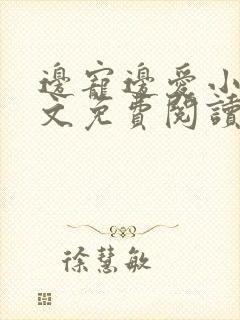 邊寵邊愛小
文免費閱讀
徐慧敏